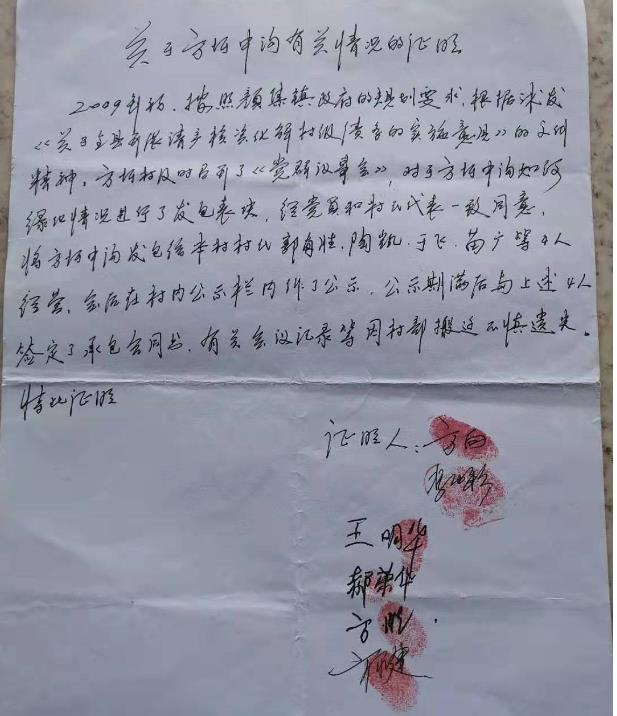 关于方圩中沟有关情况的证明
2009年初，按照颜集镇政府的规划要求，根据沭发
《关于全县开展清产核资化解村级债务的实施意见》的文件
精神，方圩村及时召开了《党群议事会》，对于方圩中沟如何
绿化情况进行了发包表决，经党员和村民代表一致同意，
将方圩中沟发包给本村村民 陶凯、于飞、苗广等4人
经营，会后在村内公示栏内作了公示，公示期满后与上述4人
签定了承包合同书，有关会议记录等因村部搬迁不慎遗失。
特此证明
证明人：方向
王明华
郝荣华
方